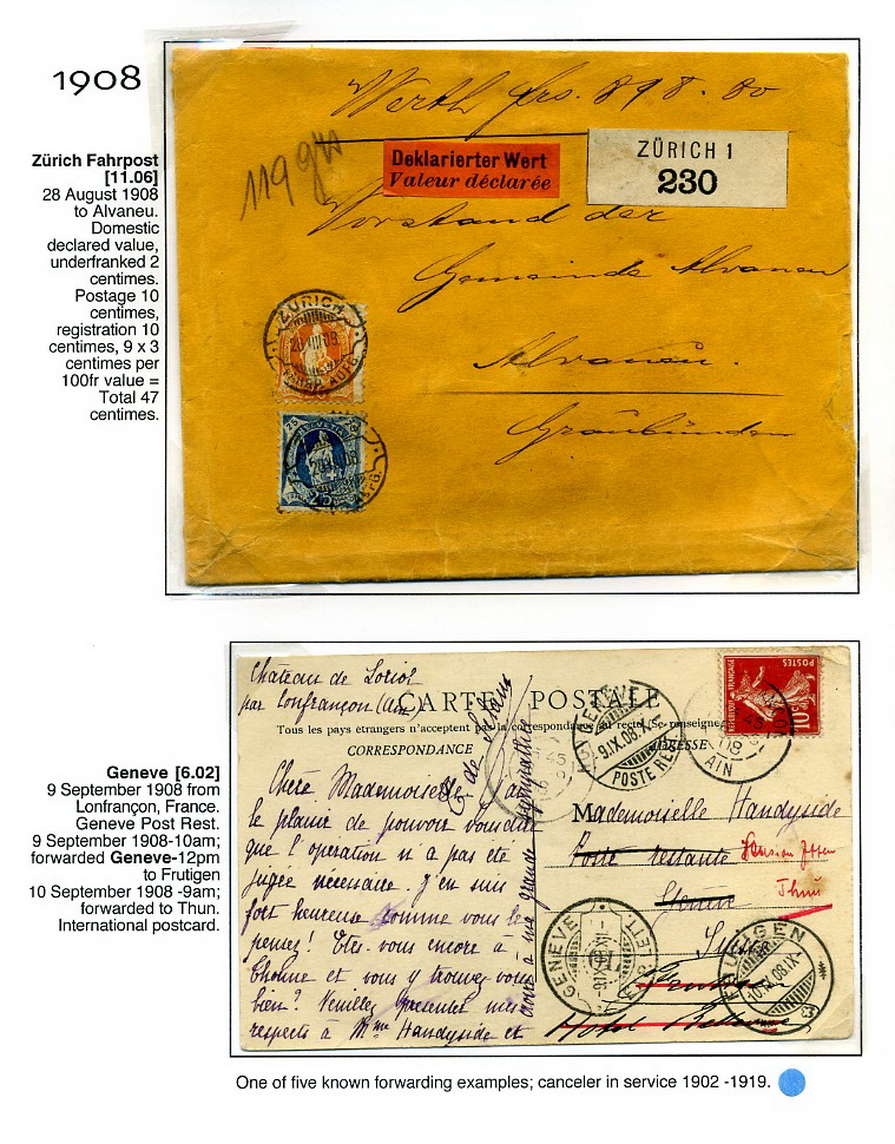 1908
Zürich Fahrpost
[11.06]
28 August 1908
to Alvaneu.
Domestic
declared value,
underfranked 2
centimes.
Postage 10
centimes,
registration 10
centimes, 9 x 3
centimes per
100fr value =
Total 47
centimes.
Werth frs. 898.80
119 grs
Deklarierter Wert
Valeur déclarée
ZÜRICH 1
230
Vorstand der
Gemeinde Alvaneu
Alvaneu.
Graubünden
ZÜRICH
HELVETIA
25 25
25
Geneve [6.02]
9 September 1908 from
Lonfrançon, France.
Geneve Post Rest.
9 September 1908-10am;
forwarded Geneve-12pm
to Frutigen
10 September 1908 -9am;
forwarded to Thun.
International postcard.
Château de Loriol
par Confrançon (Ain)
CARTE POSTALE
Tous les pays étrangers n'acceptent pas la correspondance au recto (Se renseigne
CORRESPONDANCE
ADRESSE
Chère Mademoiselle, j'ai
le plaisir de pouvoir vous dire
que l'opération n'a pas été
jugée nécessaire. j'en suis
fort heureuse comme vous le
pensez! Etes-vous encore à
Thoune et vous y trouvez-vous
bien? Veuillez présenter mes
respects à Mme Handyside et
croire à ma grande sympathie
POSTES
REPUBLIQUE FRANÇAISE
10c
AIN
GENÈVE
9.IX.08.X-
POSTE REST
Mademoiselle Handyside
Poste restante Pension
Genève Thun
Suisse
GENÈVE
FRUTIGEN
10.IX.08.IX-
Hotel Bellevue
One of five known forwarding examples; canceler in service 1902 -1919.